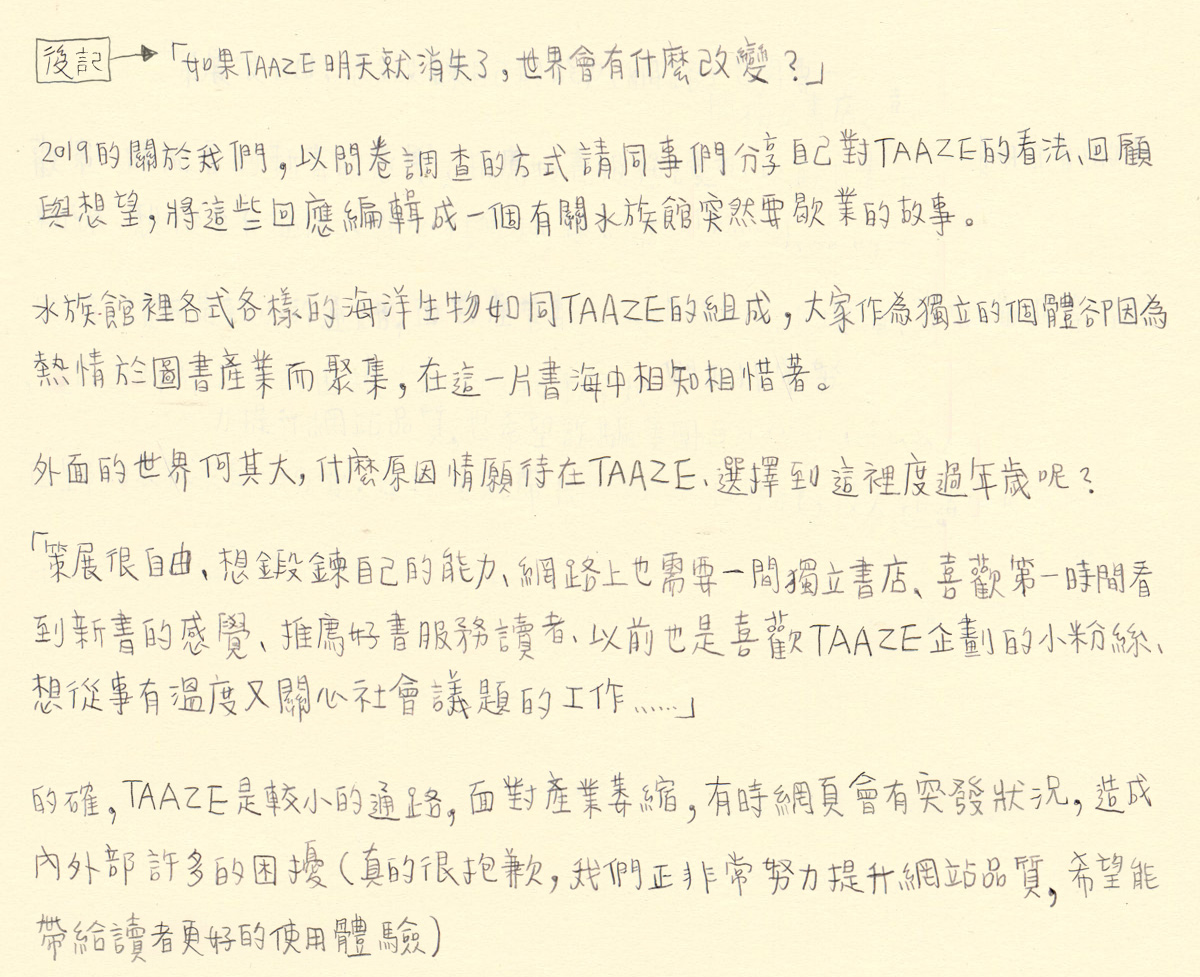 後記→「如果TAAZE明天就消失了,世界會有什麼改變?」
2019的關於我們,以問卷調查的方式請同事們分享自己對TAAZE的看法、回顧
與想望,將這些回應編輯成一個有關水族館突然要歇業的故事。
水族館裡各式各樣的海洋生物如同TAAZE的組成,大家作為獨立的個體卻因為
熱情於圖書產業而聚集,在這一片書海中相知相惜著。
外面的世界何其大,什麼原因情願待在TAAZE、選擇到這裡度過年歲呢?
「策展很自由、想鍛鍊自己的能力、網路上也需要一間獨立書店、喜歡第一時間看
到新書的感覺、推薦好書服務讀者、以前也是喜歡TAAZE企劃的小粉絲、
想從事有溫度又關心社會議題的工作……」
的確,TAAZE是較小的通路,面對產業萎縮,有時網頁會有突發狀況,造成
內外部許多的困擾(真的很抱歉,我們正非常努力提升網站品質,希望能
帶給讀者更好的使用體驗)